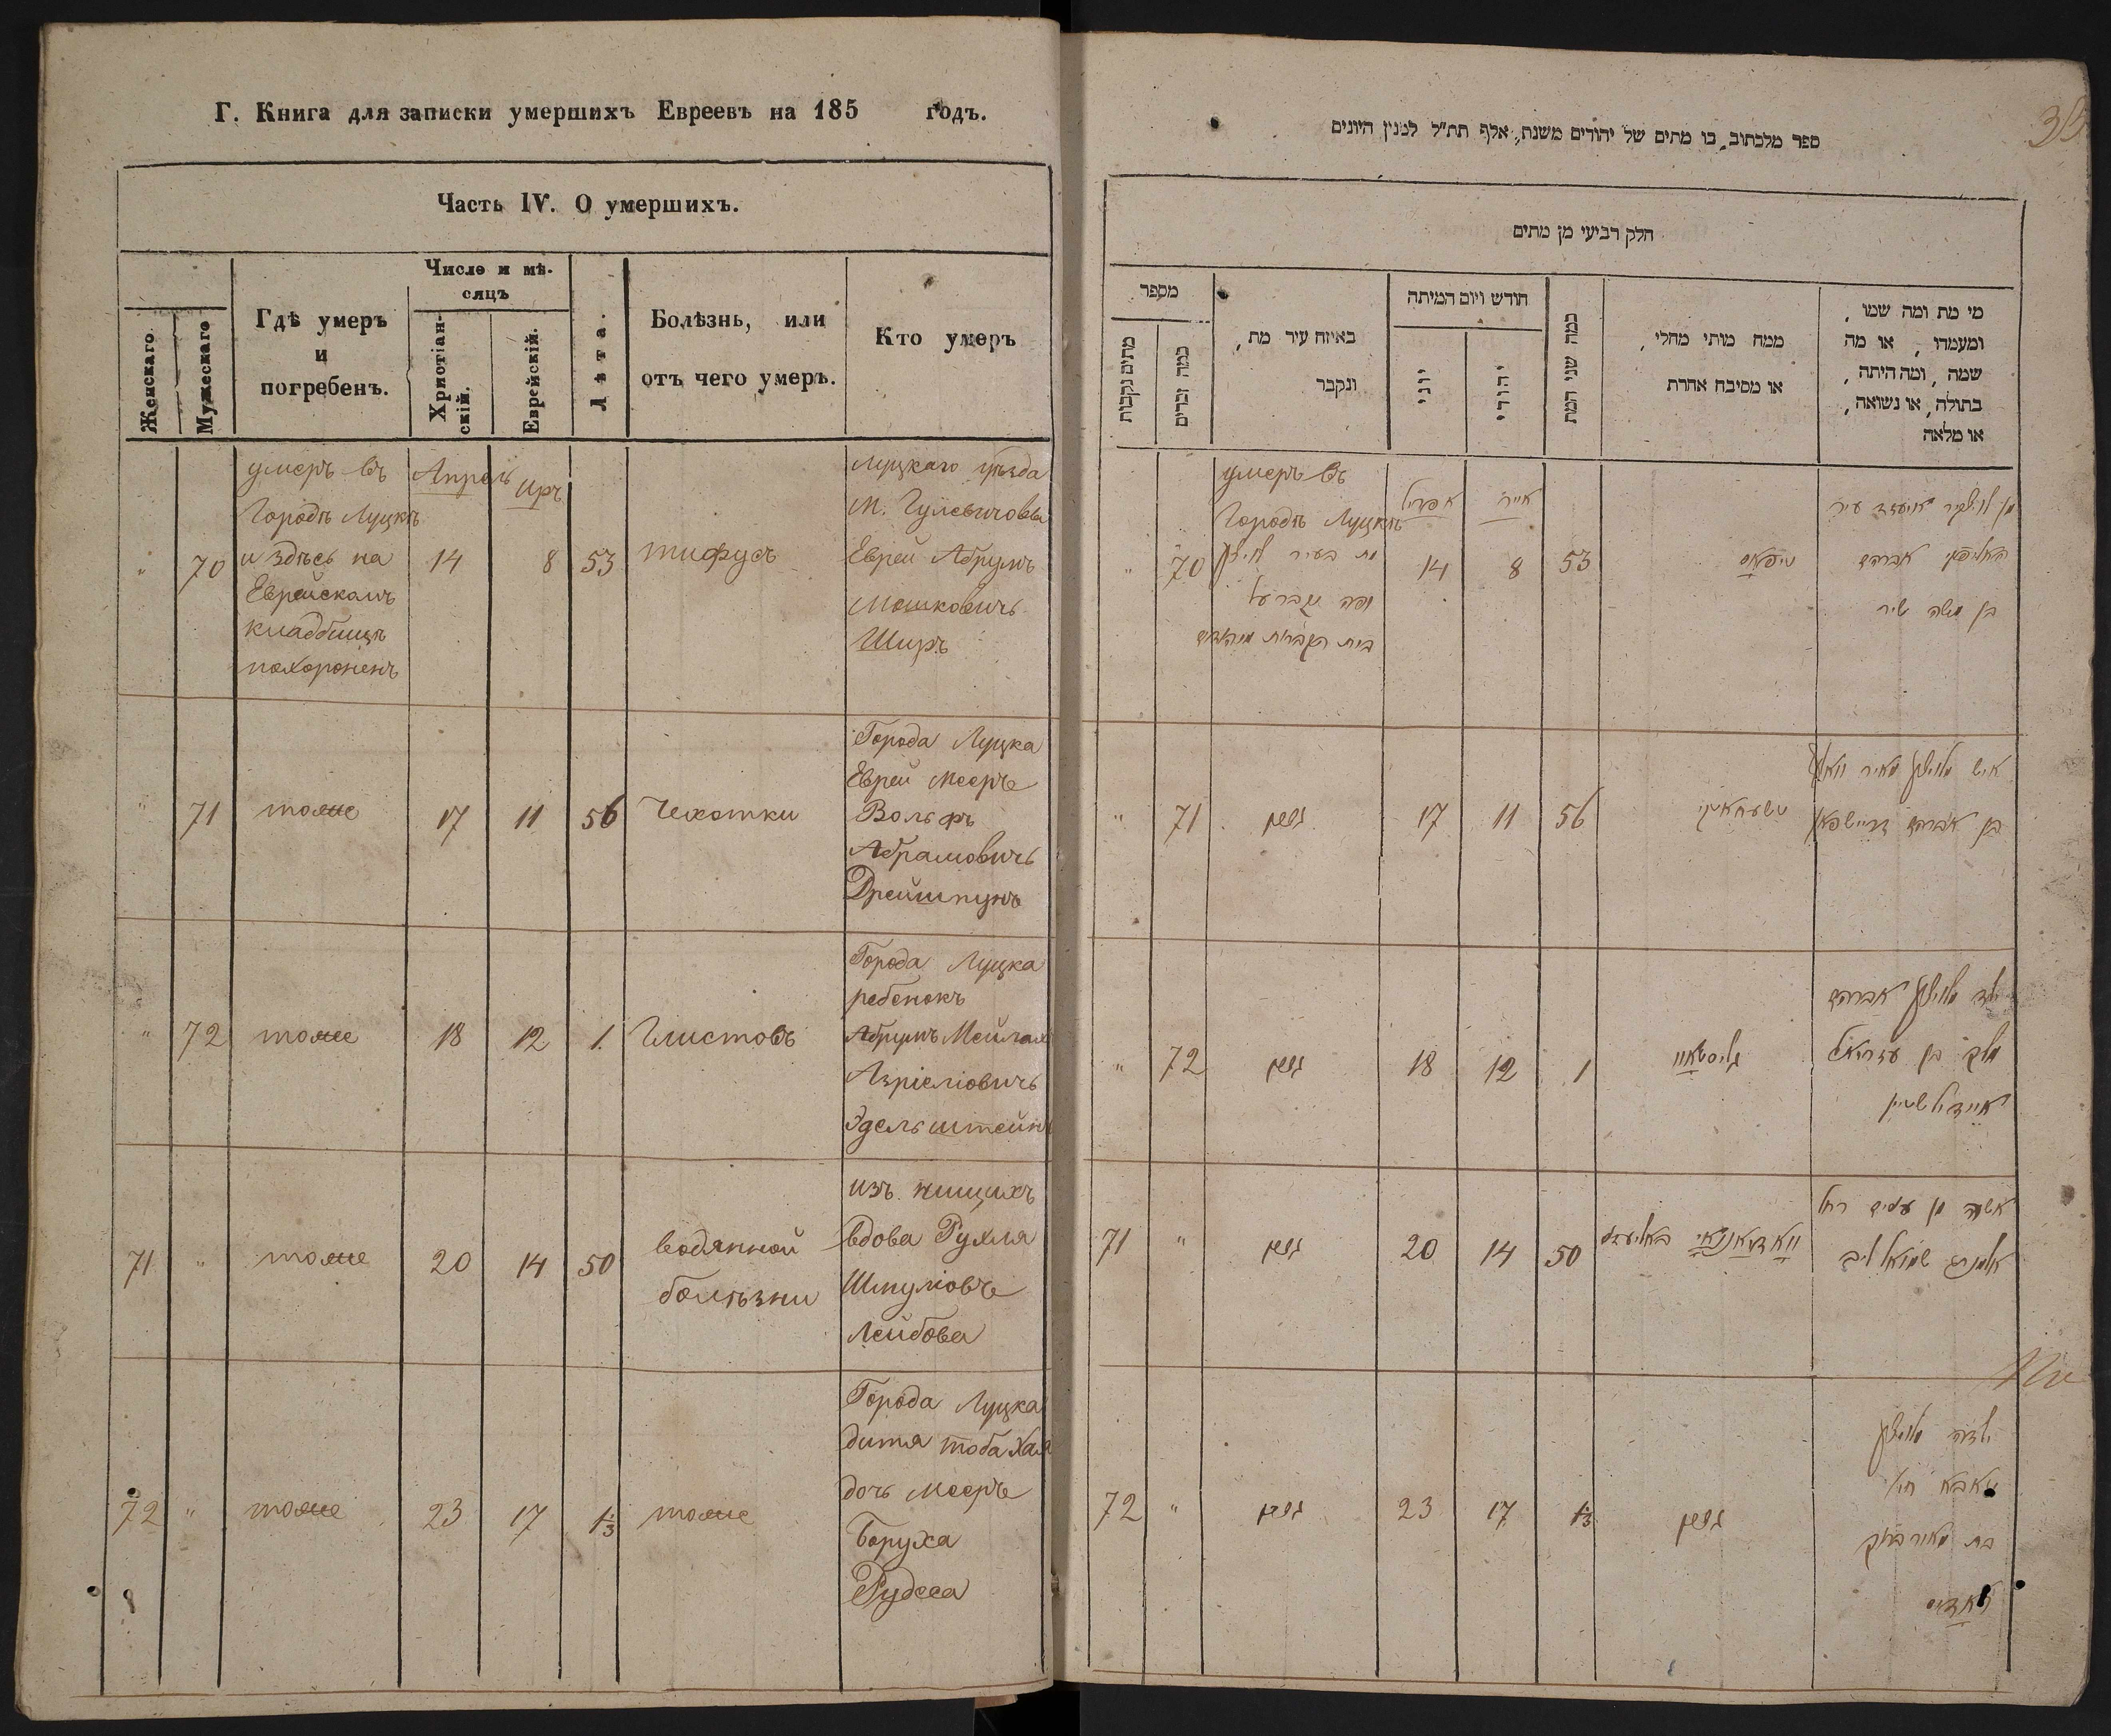 Г. Книга для записки умершихъ Евреевъ на 185 годъ.
Часть IV. О умершихъ.
Женскаго
Мужескаго
Гдѣ умеръ
и
погребенъ.
Число и мѣ-
сяцъ
Христіан-
скій.
Еврейскій.
Лѣта.
Болѣзнь, или
отъ чего умеръ.
Кто умеръ
"
70
умеръ въ
Городѣ Луцкѣ
и здѣсь на
Еврейскомъ
кладбищѣ
похороненъ
Апрель
14
Иръ
8
53
тифусъ
Луцкаго уѣзда
М. Гулевичовки
Еврей Абрумъ
Мошковичъ
Ширъ
"
71
тоже
17
11
56
Чехотки
Города Луцка
Еврей Мееръ
Вольфъ
Абрамовичъ
Дрейшпунъ
"
72
тоже
18
12
1.
Глистовъ
Города Луцка
ребенокъ
Абрумъ Мейлах
Азріеліовичъ
Эдельштейнъ
71
"
тоже
20
14
50
водянной
болѣзни
изъ нищихъ
вдова Рухля
Шмуліовъ
Лейбова
72
"
тоже
23
17
1 1/3
тоже
Города Луцка
дитя тоба Хая
дочь Мееръ
Боруха
Рудеса
35
ספר מלכתוב, בו מתים של יהודים משנת, אלף תת"ל למנין היונים
חלק רביעי מן מתים
מספר
מתים נקבות
כמה זכרים
באיזה עיר מת,
ונקבר
חודש ויום המיתה
יוני
יהודי
כמה שני המת
ממה מותי מחלי,
או מסיבה אחרת
מי מת ומה שמו,
ומעמדו, או מה
שמה, ומה היתה,
בתולה, או נשואה,
או מלאה
"
70
умеръ въ
Городѣ Луцкѣ
מת בעיר לויצק
ופה נקבר על
בית הקברות
אפריל
14
אייר
8
53
טיפאס
אברהם
בן משה שיר
"
71
17
11
56
איש מלויצק מאיר וואלף
בן אברהם דריישפאן
"
72
18
12
1
גליסטאוו
ילד מלויצק אברהם
בן עזריאל
איידילשטיין
71
"
20
14
50
וואדיאנאיי באליעזני
אשה מן רחל
אלמנת שמואל ליב
72
"
23
17
1 1/3
ילדה מלויצק
טאבא חי'
בת מאיר ברוך